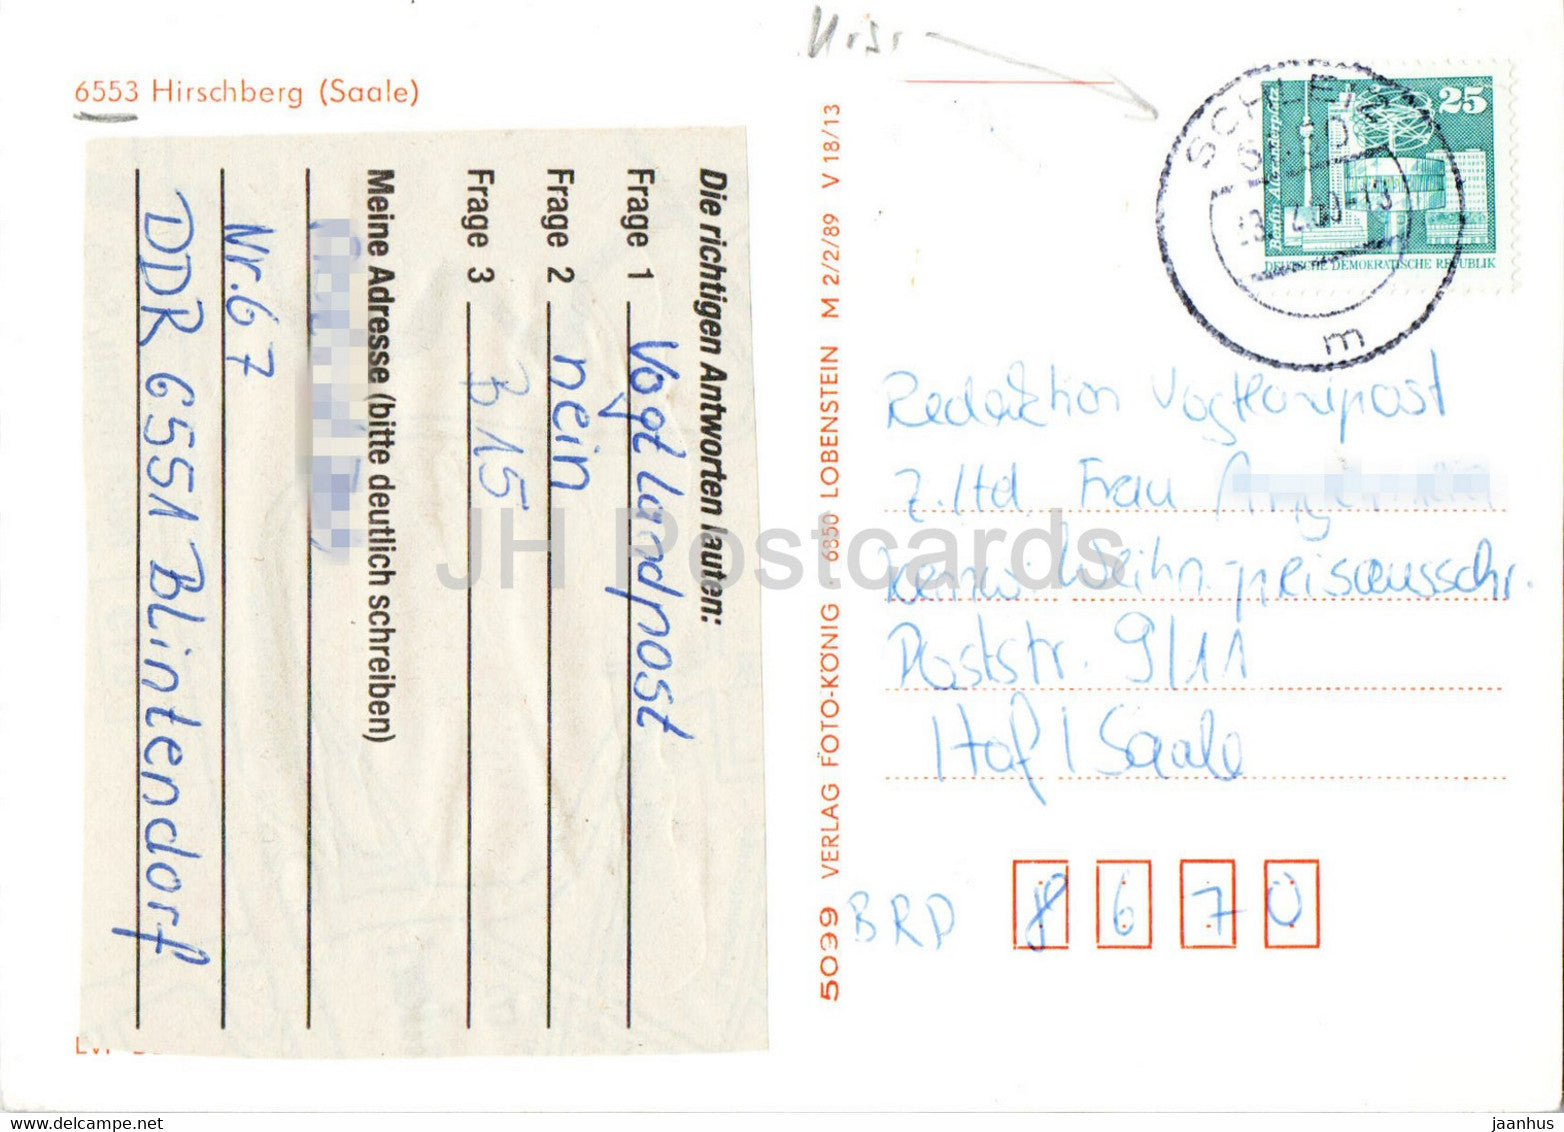 6553 Hirschberg (Saale)
Die richtigen Antworten lauten:
Frage 1 Vogtlandpost
Frage 2 nein
Frage 3 B 15
Meine Adresse (bitte deutlich schreiben)
Nr. 67
DDR 6551 Blintendorf
5099 VERLAG FOTO-KÖNIG · 6850 LOBENSTEIN M 2/2/89 V 18/13
SCHLEIZ
m
25
Berlin, Alexanderplatz
DEUTSCHE DEMOKRATISCHE REPUBLIK
Redaktion Vogtlandpost
z. Hd. Frau
Kennw. Weihn.-preisausschr.
Poststr. 9/11
Hof / Saale
BRD 8670
JH Postcards
delcampe.net
jaanhus